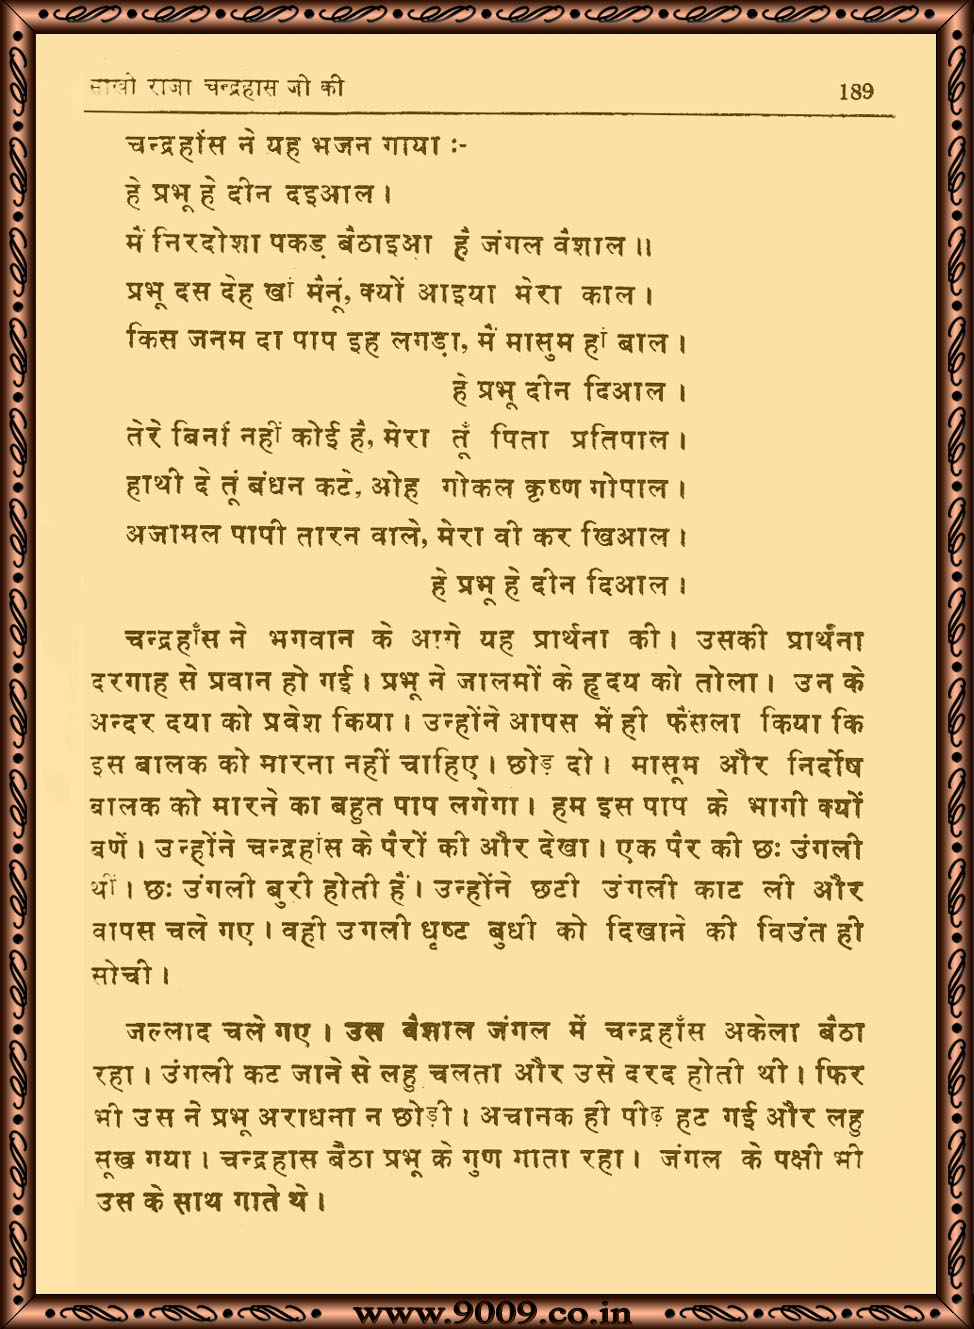 साखी राजा चन्द्रहास जी की 189
चन्द्रहांस ने यह भजन गाया :-
हे प्रभू हे दीन दइआल ।
मैं निरदोशा पकड़ बैठाइआ है जंगल वैशाल ॥
प्रभू दस देह खां मैनूं, क्यों आइया मेरा काल ।
किस जनम दा पाप इह लगड़ा, मैं मासुम हां बाल ।
हे प्रभू दीन दिआल ।
तेरे बिनां नहीं कोई है, मेरा तूँ पिता प्रतिपाल ।
हाथी दे तूं बंधन कटे, ओह गोकल कृष्ण गोपाल ।
अजामल पापी तारन वाले, मेरा वी कर खिआल ।
हे प्रभू हे दीन दिआल ।
चन्द्रहाँस ने भगवान के आगे यह प्रार्थना की । उसकी प्रार्थना
दरगाह से प्रवान हो गई । प्रभू ने जालमों के हृदय को तोला । उन के
अन्दर दया को प्रवेश किया । उन्होंने आपस में ही फैसला किया कि
इस बालक को मारना नहीं चाहिए । छोड़ दो । मासूम और निर्दोष
बालक को मारने का बहुत पाप लगेगा । हम इस पाप के भागी क्यों
बणें । उन्होंने चन्द्रहांस के पैरों की और देखा । एक पैर की छः उंगली
थीं । छः उंगली बुरी होती हैं । उन्होंने छटी उंगली काट ली और
वापस चले गए । वही उगली धृष्ट बुधी को दिखाने की विउंत ही
सोची ।
जल्लाद चले गए । उस बैशाल जंगल में चन्द्रहाँस अकेला बैठा
रहा । उंगली कट जाने से लहु चलता और उसे दरद होती थी । फिर
भी उस ने प्रभू अराधना न छोड़ी । अचानक ही पीढ़ हट गई और लहु
सूख गया । चन्द्रहास बैठा प्रभू के गुण गाता रहा । जंगल के पक्षी भी
उस के साथ गाते थे ।
www.9009.co.in